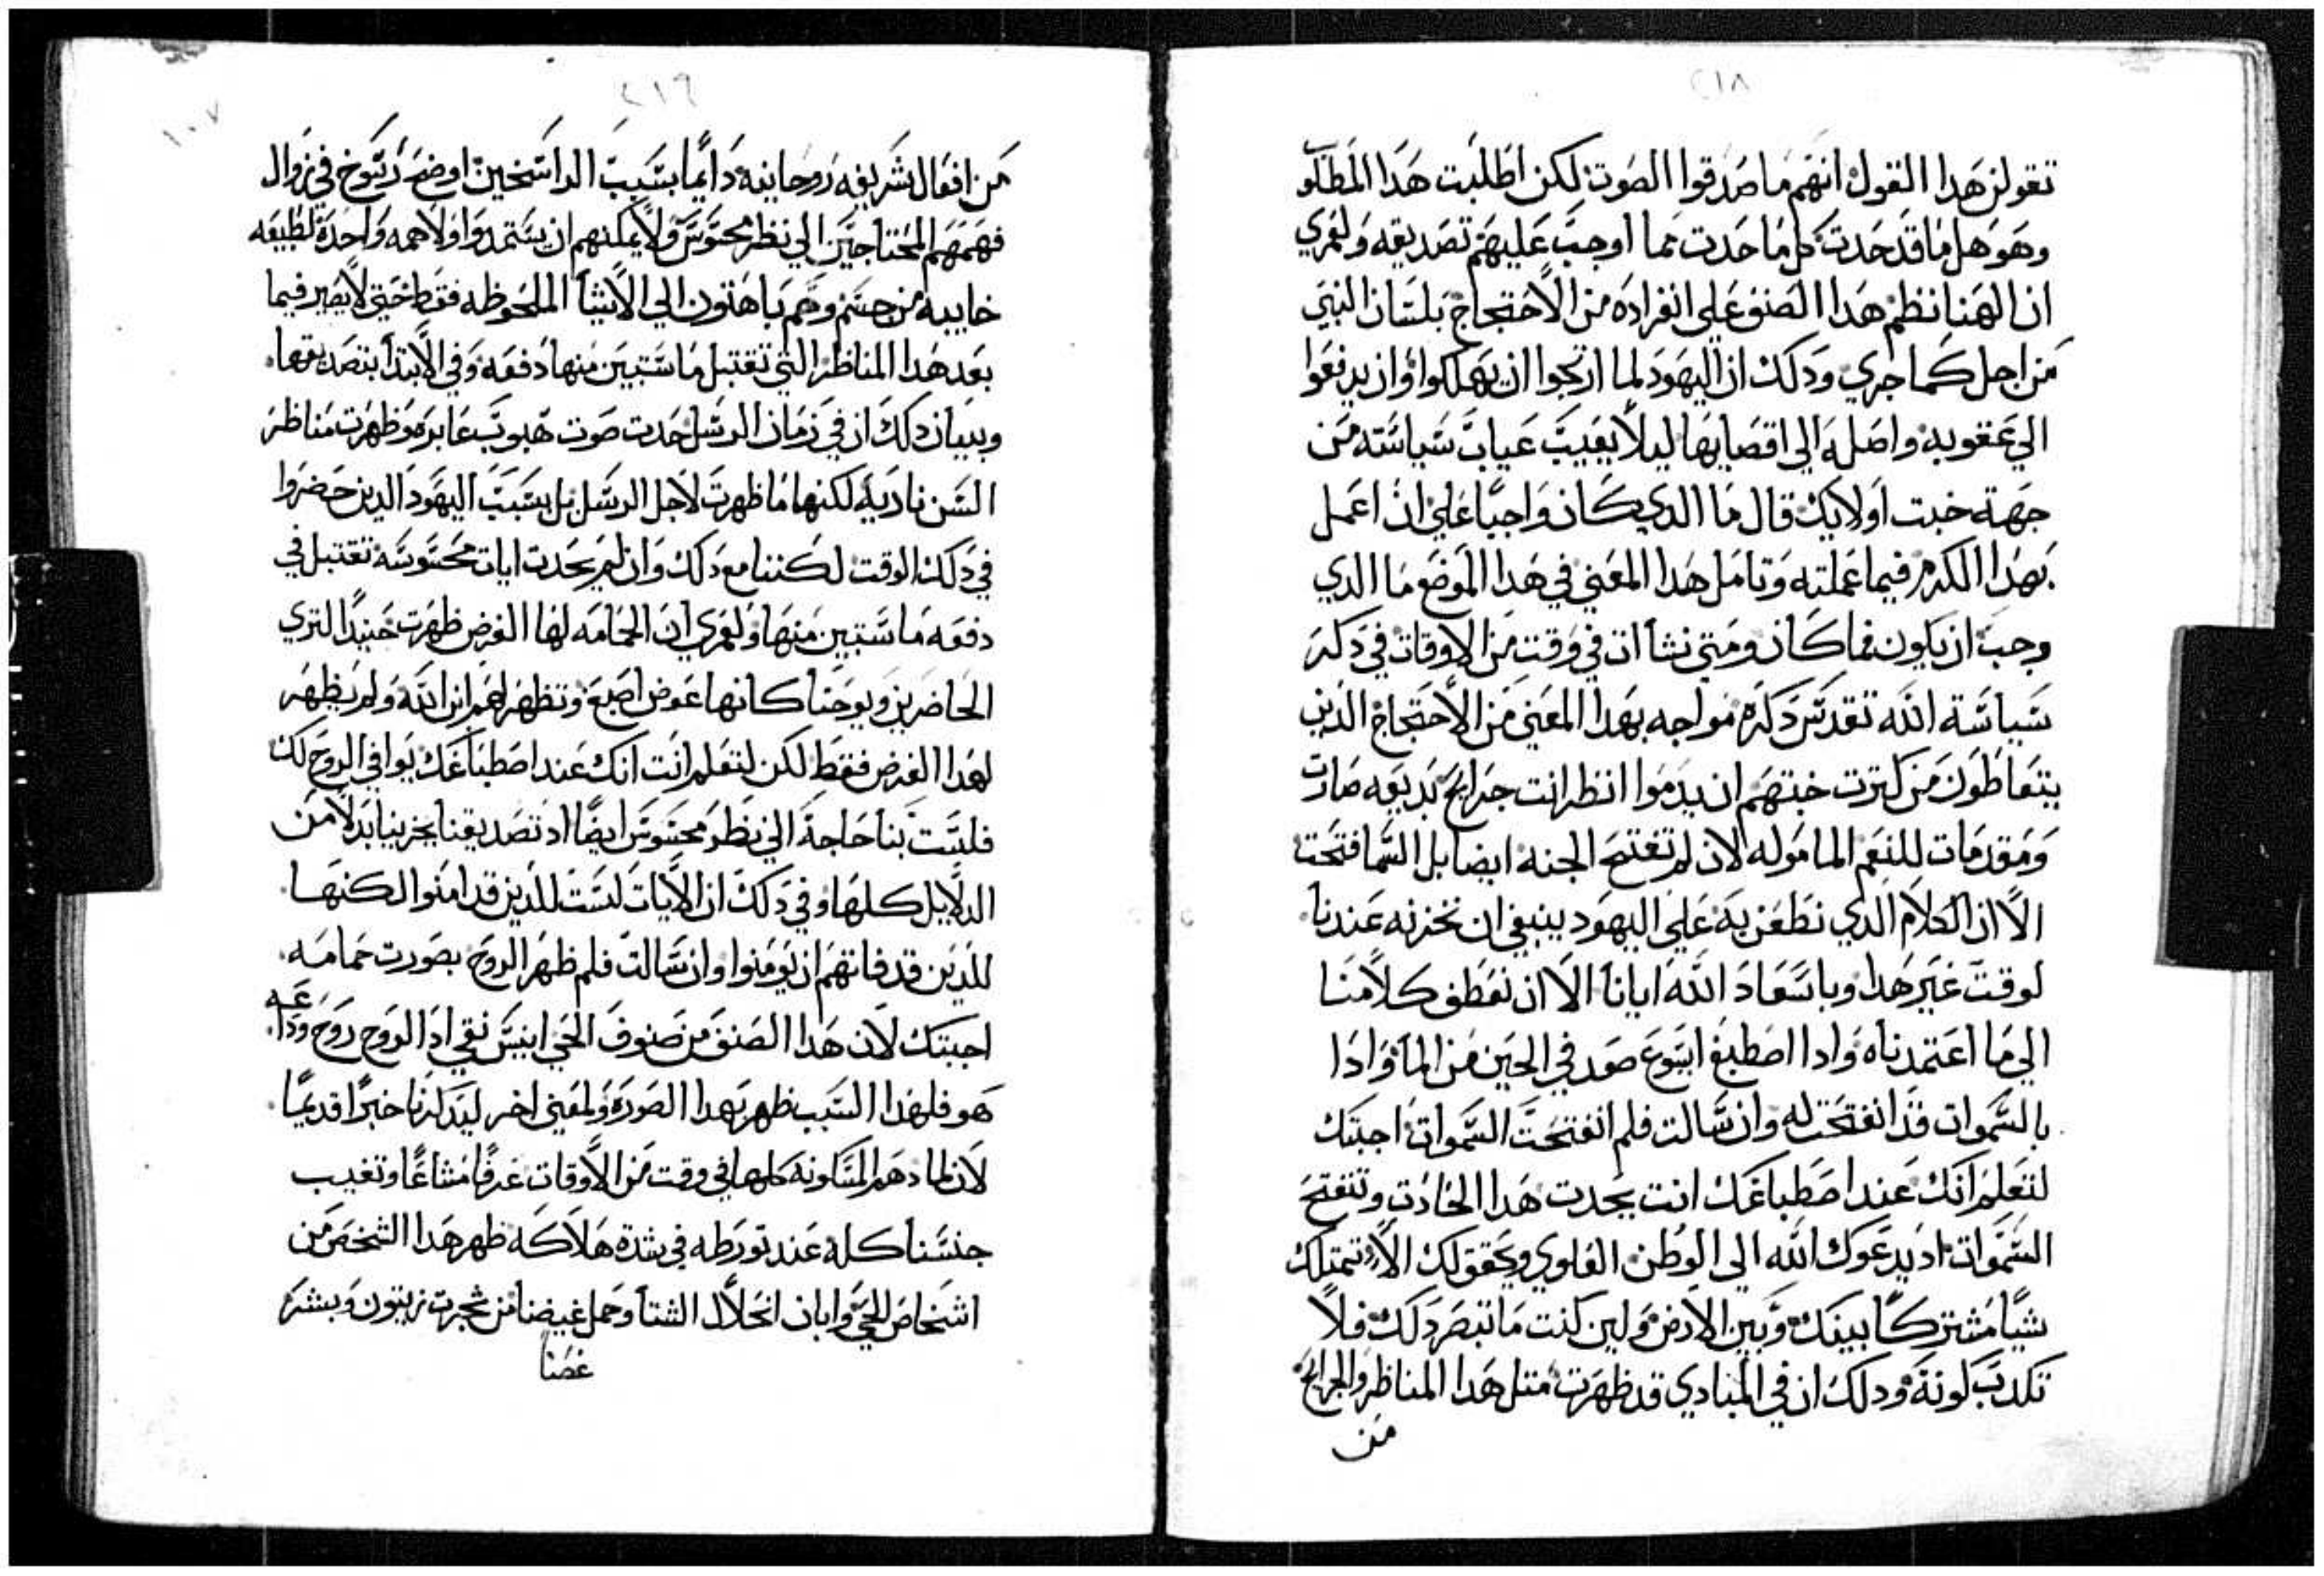 ٢١٨
تقولن هدا القول انهم ما صدقوا الصوت لكن اطلبت هدا المطلوب
وهو هل ما قد حدت كل ما حدت مما اوجب عليهم تصديقه ولعمري
ان الهنا نظم هدا الصنف علي انفراده من الاحتجاج بلسان النبي
من اجل كما جري ودلك ان اليهود لما ارتجوا ان يهلكوا وان يدفعوا
الي عقوبه واصله الي اقصايها ليلا يعيب عياب سياسته من
جهة خبت اولايك قال ما الدي كان واجبا علي ان اعمل
بهدا الكرم فيما عملته وتامل هدا المعني في هدا الموضع ما الدي
وجب ان يكون فما كان ومتي نشا ان في وقت من الاوقات في دكر
سياسة الله تقدس دكره مواجه بهدا المعني من الاحتجاج الدين
يتعاطون من كترت خبتهم ان يدموا انظر انت جرايح بديعه صارت
ومقدمات للنعم المامو له لان لم تفتح الجنه ايضا بل السما فتحت
الا ان الكلام الدي نطعن به علي اليهود ينبغي ان نخزنه عندنا
لوقت غير هدا وباسعاد الله ايانا الا ان نعطف كلامنا
الي ما اعتمدناه وادا اصطبغ ايسوع صعد في الحين من الما وادا
بالسموات قد انفتحت له وان سالت فلم انفتحت السموات اجبتك
لتعلم انك عند اصطباغك انت يحدت هدا الحادت وتنفتح
السموات اد يدعوك الله الي الوطن العلوي ويحقق لك الا تمتلك
شيا مشتركا بينك وبين الارض ولين كنت ما تبصر دلك فلا
تكدب كونه ودلك ان في المبادي قد ظهرت متل هدا المناظر والجرايح
من
٢١٩
١٠٧
من افعال شريفه روحانيه دايما بسبب الداسخين اوضع رسوخ في زوال
فهمهم المحتاجين الي نظر محسوس ولا يمكنهم ان يستمدوا ولا همه واحدة لطيفه
خاييه من جسم وهم باهتون الي الاشيا الملحوظه فقط حتي لا يصير فيما
بعد هدا المناظر التي تقتبل ما ستبين منها دفعه وفي الابتدا بتصديقها
وبيان دلك ان في زمان الرسل حدت صوت هبوب عابر وظهرت مناظر
السن ناريه لكنها ما ظهرت لاجل الرسل بل بسبب اليهود الدين حضروا
في دلك الوقت لكننا مع دلك وان لم يحدت ايات محسوسه تقتبل في
دفعه ما ستبين منها ولعمري ان الحمامه لهدا الغرض ظهرت حينيد التري
الحاضرين ويوحنا كانها عوض اصبع وتظهر لهم ابن الله ولم يظهر
لهدا الغرض فقط لكن لتعلم انت انك عند اصطباغك يوافي الروح لك
فليست بنا حاجة الي نظر محسوس ايضا اد تصديقنا يجزينا بدلا من
الدلايل كلها وفي دلك ان الايات ليست للدين قد امنوا لكنها
للدين قد فاتهم ان يومنوا وان سالت فلم ظهر الروح بصورت حمامه
اجبتك لان هدا الصنف من صنوف الحي انيس نقي اد الروح روح ودا
عه
هو فلهدا السبب ظهر بهدا الصوره ولمعني اخر ليدكرنا خبرا قديما
لان لما دهم المسكونه كلها في وقت من الاوقات غرقا مشاعا وتغيب
جنسنا كله عند تورطه في شدة هلاكه ظهر هدا الشخص من
اشخاص الحي وابان انحلال الشتا وحمل غيضنا من شجرت زيتون وبشر
غصنا